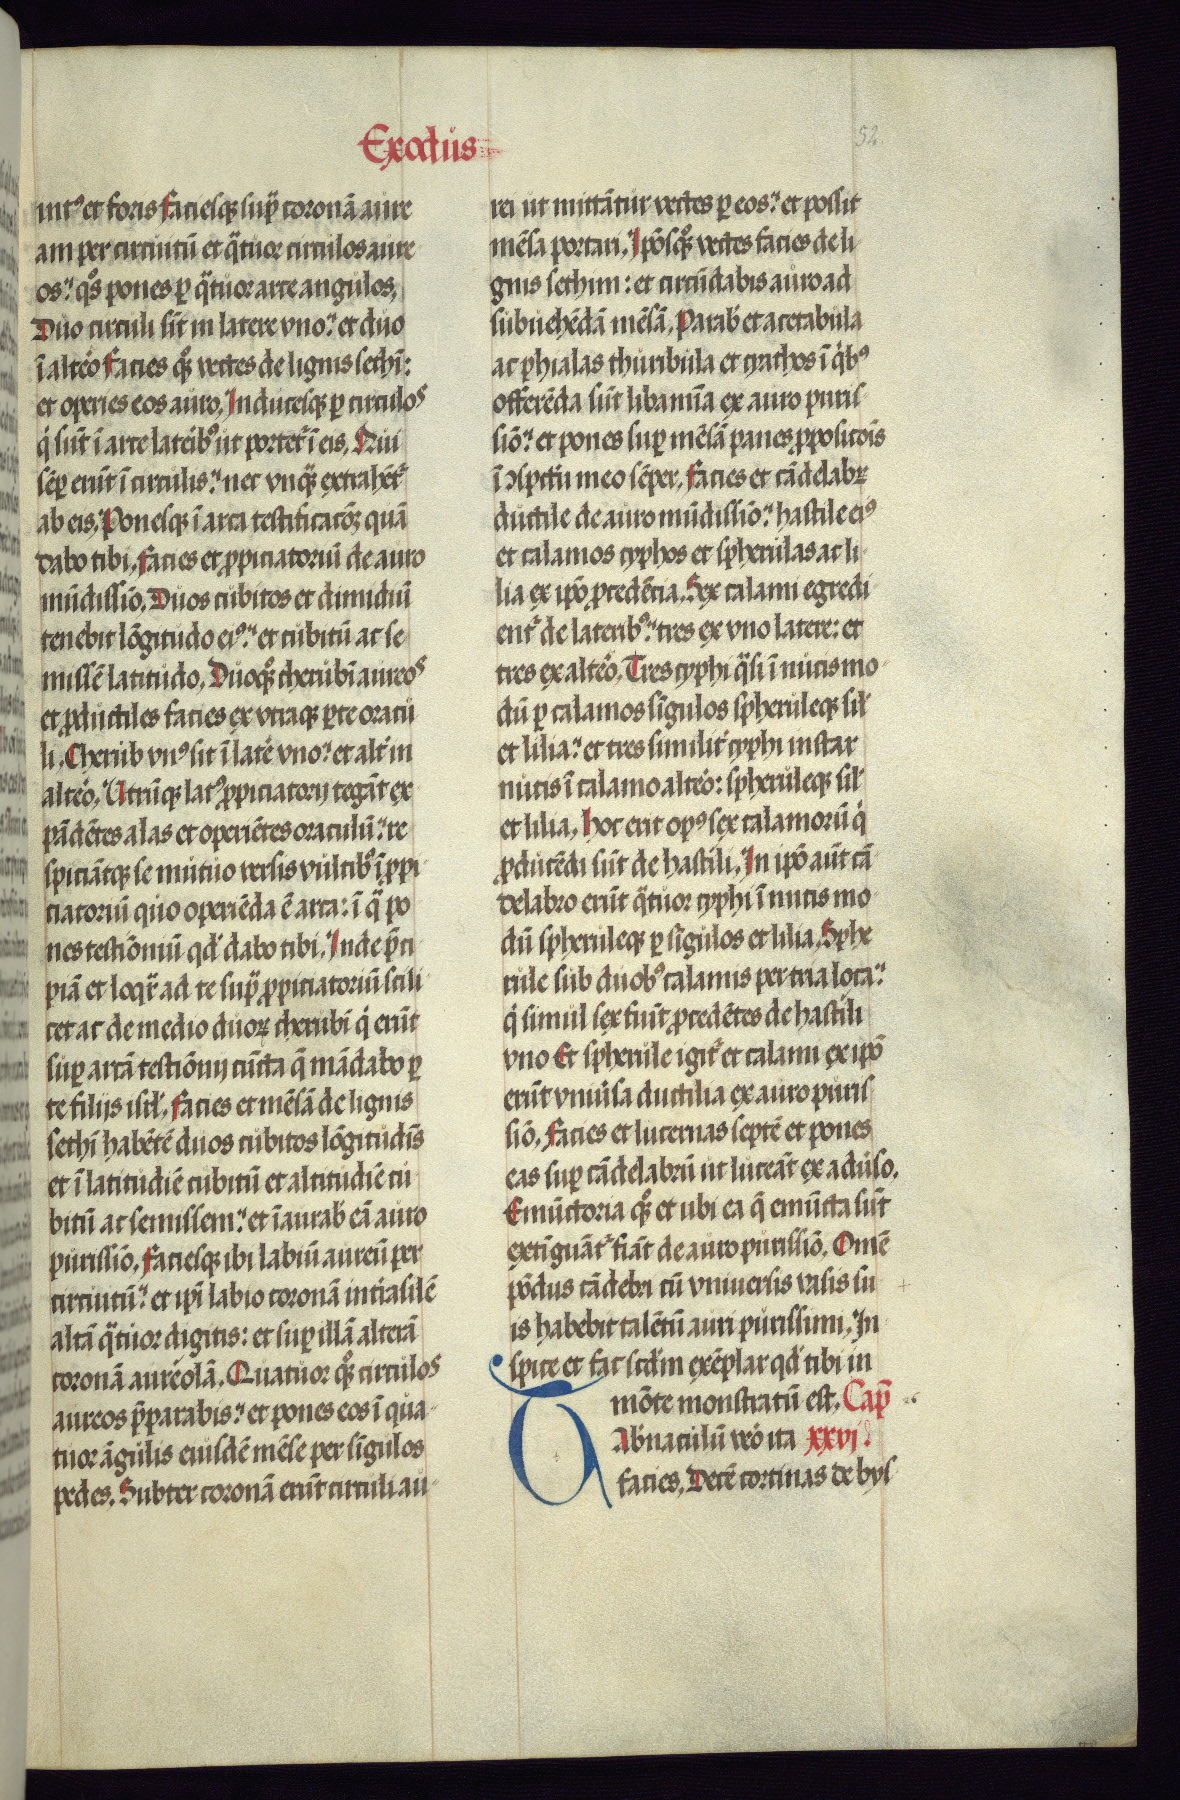 Exodus
52
intꝰ et foris Faciesqꝫ supͣ coronā aure
am per circuitū et qͣtuor circulos aure
os: qͦs pones ꝑ qͣtuor arce angulos,
Duo circuli sīt in latere vno: et duo
ī altẽo Facies qͦꝫ vectes de lignis sethī:
et operies eos auro. Inducesqꝫ ꝑ circulos
qͥ sūt ī arce lateribꝰ ut portetͬ ī eis, Qui
sēꝑ erūt ī circulis: nec vnqͣꝫ extrahētͬ
ab eis, Ponesqꝫ ī arca testificacōꝫ quā
dabo tibi, Facies et ꝓpiciatoriū de auro
mūdissīo, Duos cubitos et dimidiuī
tenebit lōgitudo eiꝰ: et cubitū ac se
missē latitudo, Duoqꝫ cherubī aureos
et ꝓductiles facies ex vtraqꝫ ꝑte oracu
li, Cherub vnꝰ sit ī laté vno: et altͬ in
altéo, Utrūqꝫ latꝰ ꝓpiciatorij tegāt ex
pādētes alas et operiētes oraculū: re
spiciātqꝫ se mutuo versis vultibꝰ ī ꝓpi
ciatoriū quo operiēda ē arca: ī qͣ po
nes testiōniū qd̕ dabo tibi, Inde p̄ci
piā et loqͬr ad te supͣ ꝓpiciatoriū scili
cet ac de medio duoꝝ cherubī qͥ erūt
suꝑ arcā testiōnij cūcta q̄ mādabo ꝑ
te filijs isrl̕, Facies et mēsā de lignis
sethī habētē duos cubitos lōgitudīs
et ī latitudīe cubitū et altitudīe cu
bitū ac semissem: et īaurab̕ eā auro
purissīo, Faciesqꝫ ibi labiū aureū per
circuitū: et ip̄i labio coronā int̕rasilē
altā qͣtuor digitis: et suꝑ illā alterā
coronā auréolā, Quatuor qͦꝫ circulos
aureos p̄parabis: et pones eos ī qua
tuor āgulis eiusdē mēse per sīgulos
pedes, Subter coronā erūt circuli au
rei ut mittātur vectes ꝑ eos: et possit
mēsa portari, Ip̄osqͦꝫ vectes facies de li
gnis sethim: et circūdabis auro ad
subuehēdā mēsā, Parab̕ et acetabula
ac phialas thuribula et cyathos ī qͥbꝰ
offerēda sūt libamīa ex auro puris
sīo: et pones suꝑ mēsā panes ꝓpositoīs
ī ꝯspctū meo sēper, Facies et cādelabꝝ
ductile de auro mūdissīo: hastile eiꝰ
et calamos cyphos et spherulas ac li
lia ex ip̄o ꝓcedēcia, Sex calami egredi
entͬ de lateribꝰ: tres ex vno latere: et
tres ex altéo, Tres cyphi qͣsi ī nucis mo
dū ꝑ calamos sīgulos spheruleqꝫ sil̕
et lilia: et tres similit̕ cyphi instar
nucis ī calamo altéo: spheruleqꝫ sil̕
et lilia, Hoc erit opꝰ sex calamorū qͥ
ꝓducēdi sūt de hastili, In ip̄o aūt cā
delabro erūt qͣtuor cyphi ī nucis mo
dū spheruleqꝫ ꝑ sīgulos et lilia, Sphe
rule sub duobꝰ calamis per tria loca:
qͥ simul sex fiūt ꝓcedētes de hastili
vno Et spherule igitͬ et calami ex ip̄o
erūt vniūsa ductilia ex auro puris
sīo, Facies et lucernas septē et pones
eas suꝑ cādelabrū ut luceāt ex adūso.
Emūctoria qͦꝫ et ubi ea q̄ emūcta sūt
extīguātͬ fiāt de auro purissīo, Omē
pōdus cādebri cū vniuersis vasis su
is habebit talētū auri purissimi, In
spice et fac scd̄m exēplar qd̕ tibi in
mōte monstratū est, Cap̄
Tab̕naculū vero ita xxvj
facies, Decē cortinas de bys